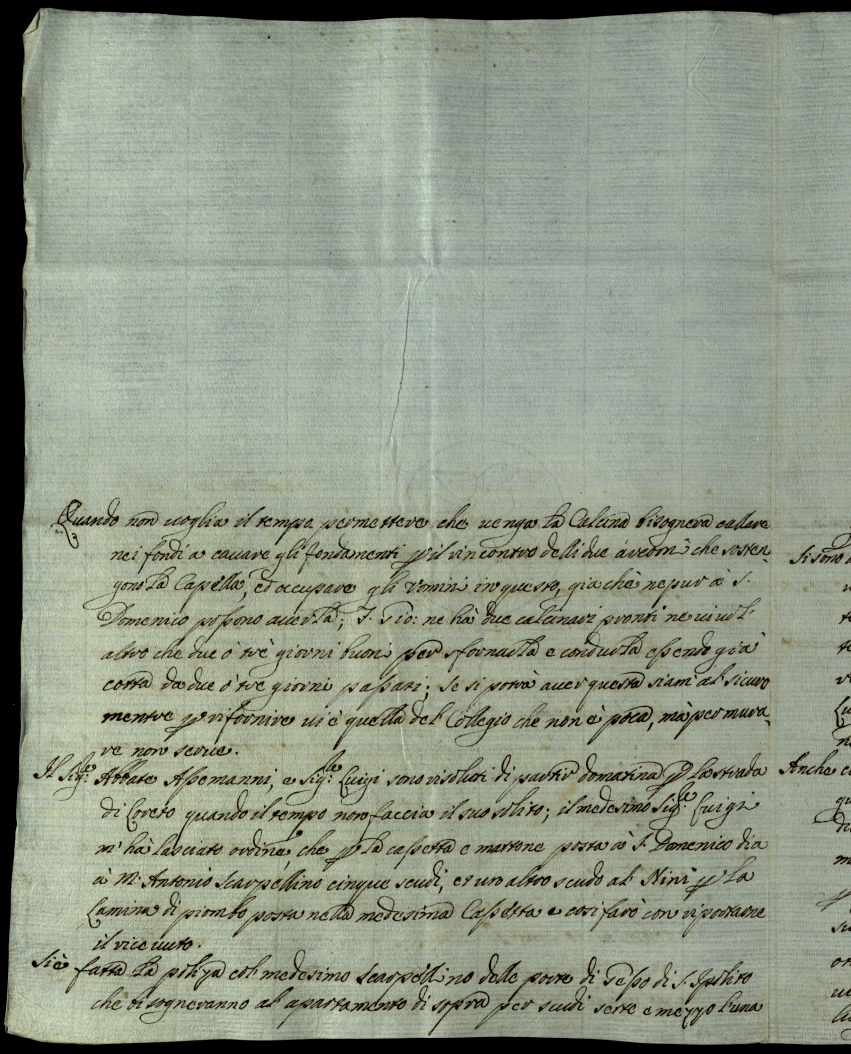 Quando non voglia il tempo permettere che venga la Calcina bisognerà callare
nei fondi a cavare gli fondamenti p il rincontro delli due avedoni che sosten
gono la Capella, ed occupare gli Vomini in questo, già chè nepur à S.
Domenico possono averla; S. Gio: ne hà due calcinari pronti ne vi vol
altro che due ò trè giorni buoni per sfornarla e condurla essendo già
cotta da due ò tre giorni passati; se si potrà aver questa siam al sicuro
mentre p rifornire vi è quella del Collegio che non è poca, mà per mura,
re non serve.
Il Sig:re Abbate Assemanni, e Sig:re Luigi sono risoluti di partir domatina p la strada
di Loreto quando il tempo non faccia il suo solito; il medesimo Sig:re Luigi
m' hà lasciato ordine, che p la cassetta e mattone posta à S. Domenico dia
à M: Antonio Scarpellino cinque scudi, et un altro scudo al Nini p la
Lamina di piombo posta nella medesima Cassetta e cosi farò con riportarne
il ricevuto.
Si è fatta la poliza col medesimo Scarpellino delle porte di Gesso di S. Ipolito
che bisogneranno al apartamento di sopra per scudi sette e mezzo l'una
Si sono
Anche